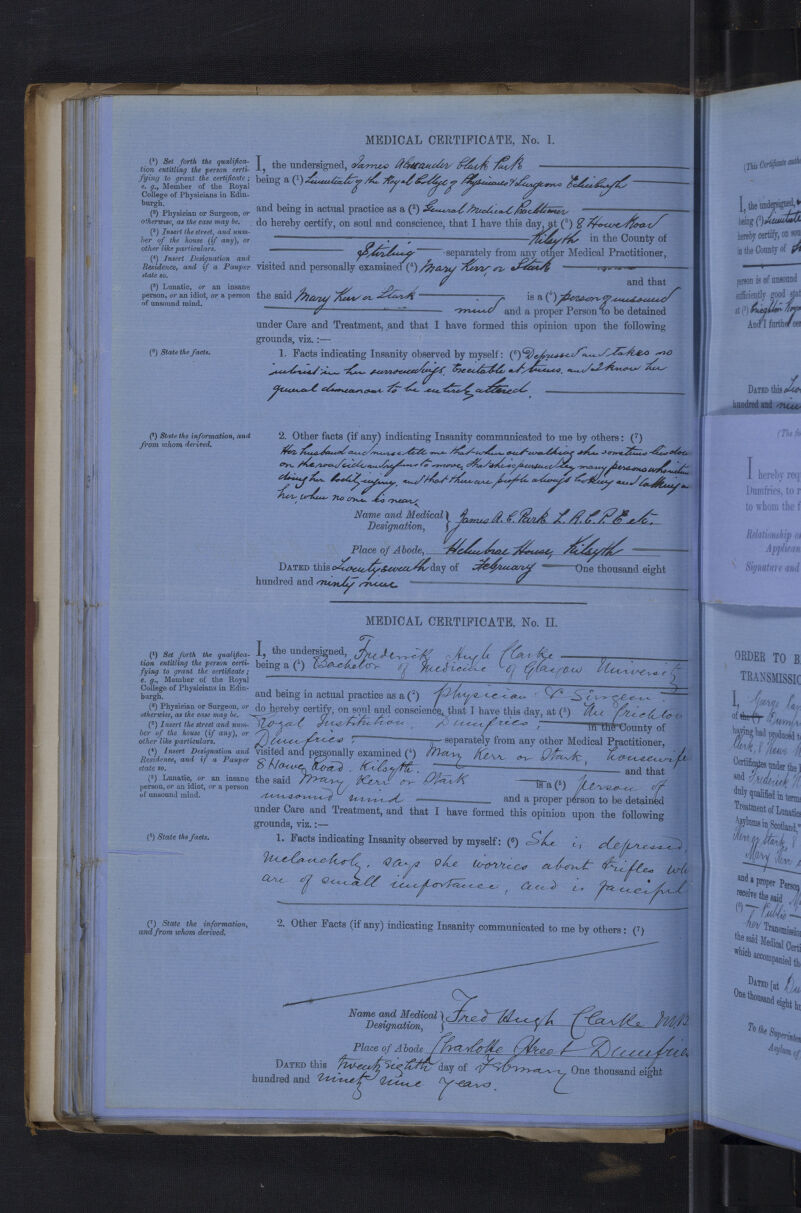 MEDICAL CERTIFICATE, No. I.
(¹) Set forth the qualifica-
tion entitling the person certi-
fying to grant the certificate;
e. g., Member of the Royal
College of Physicians in Edin-
burgh.
(²) Physician or Surgeon, or
otherwise, as the case may be.
(³) Insert the street, and num-
ber of the house (if any), or
other like particulars.
(⁴) Insert Designation and
Residence, and if a Pauper
state so.
(⁵) Lunatic, or an insane
person, or an idiot, or a person
of unsound mind.
I, the undersigned, James Alexander Clark Park
being a (¹) Licentiate of the Royal College of Physicians & Surgeons Edinburgh
and being in actual practice as a (²) General Medical Practitioner
do hereby certify, on soul and conscience, that I have this day, at (³) 8 Howe Road
Kilsyth in the County of
Stirling separately from any other Medical Practitioner,
visited and personally examined (⁴) Mary Kerr, or Stark
and that
the said Mary Kerr or Stark is a (⁵) person of unsound
mind and a proper Person to be detained
under Care and Treatment, and that I have formed this opinion upon the following
grounds, viz. :—
(⁶) State the facts.
1. Facts indicating Insanity observed by myself: (⁶) Depressed and takes no
interest in her surroundings. Excitable at times. and I know her
general demeanour to be entirely altered.
(⁷) State the information, and
from whom derived.
2. Other facts (if any) indicating Insanity communicated to me by others: (⁷)
Her husband and nurse tell me that when out walking she sometimes lies down
on the road side and refuses to move, that she is pursued by many persons who
doing her bodily injury, and that there are people always looking and talking
her, when no one is near.
Name and Medical Designation, James A. C. Park L.R.C.P.E etc.
Place of Abode, Helenbrae House, Kilsyth
DATED this twenty seventh day of February One thousand eight
hundred and ninety nine
MEDICAL CERTIFICATE, No. II.
(¹) Set forth the qualifica-
tion entitling the person certi-
fying to grant the certificate;
e. g., Member of the Royal
College of Physicians in Edin-
burgh.
(²) Physician or Surgeon, or
otherwise, as the case may be.
(³) Insert the street and num-
ber of the house (if any), or
other like particulars.
(⁴) Insert Designation and
Residence, and if a Pauper
state so.
(⁵) Lunatic, or an insane
person, or an idiot, or a person
of unsound mind.
I, the undersigned, Frederick Hugh Clarke
being a (¹) Bachelor of Medicine of Glasgow University
and being in actual practice as a (²) Physician & Surgeon.
do hereby certify, on soul and conscience, that I have this day, at (³) the Crichton
Royal Institution, Dumfries, in the County of
Dumfries, separately from any other Medical Practitioner,
visited and personally examined (⁴) Mary Kerr or Stark, housewife
8 Howe Road. Kilsyth. and that
the said Mary Kerr or Stark is a (⁵) person of
unsound mind and a proper person to be detained
under Care and Treatment, and that I have formed this opinion upon the following
grounds, viz. :—
(⁶) State the facts.
1. Facts indicating Insanity observed by myself: (⁶) She is depressed,
melancholy. says she worries about trifles wh
are of small importance, and is fanciful
(⁷) State the information,
and from whom derived.
2. Other Facts (if any) indicating Insanity communicated to me by others: (⁷)
Name and Medical Designation, Fred Hugh Clarke MB
Place of Abode Charlotte Street Dumfries
DATED this twenty eighth day of February One thousand eight
hundred and ninety nine years.
(This Certificate
I, the undersigned,
being (¹)
hereby certify, on
in the County of
person is of unsound
sufficiently good
at (²)
And I further
DATED this
hundred and
I hereby req
Dumfries, to
to whom the f
Relationship
Applican
Signature and
ORDER TO B
TRANSMISSIO
I, George
of the
having had produced
Certificates under the
and Frederick
duly qualified in
Treatment of Lunatics
Asylums in Scotland,
Mary Kerr
and a proper Person
receive the said
Public
her Transmission
the said Medical Certi
which accompanied
DATED [at
One thousand eight
To the Superinten
Asylum of